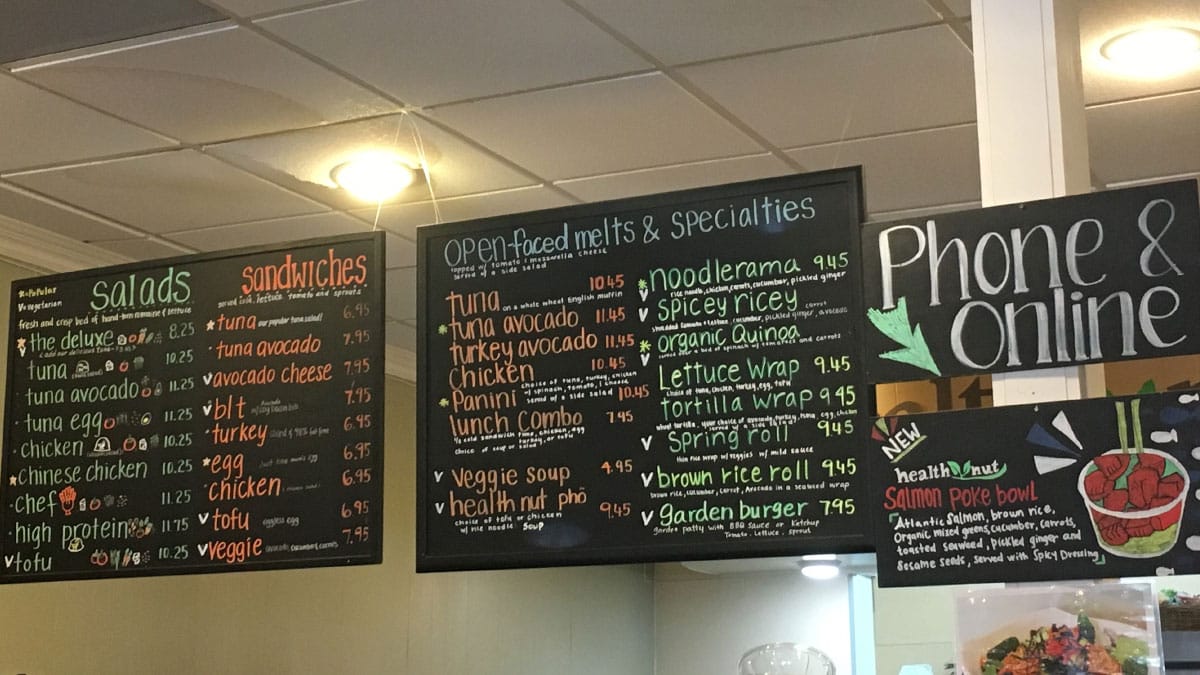 Popular
Vegetarian
salads
fresh and crisp bed of hand-torn romaine & lettuce
the deluxe 8.25
tuna 10.25
tuna avocado 11.25
tuna egg 11.25
chicken 10.25
chinese chicken 10.25
chef 11.25
high protein 11.75
tofu 10.25
sandwiches
served cold, lettuce, tomato and sprouts
tuna our popular tuna salad! 6.95
tuna avocado 7.95
avocado cheese 7.95
blt 7.95
turkey 6.95
egg 6.95
chicken 6.95
tofu eggless egg 6.95
veggie avocado, cucumber, carrots 7.95
open-faced melts & specialties
topped w/ tomato & mozzarella cheese
served w/ a side salad
tuna on a whole wheat English muffin 10.45
tuna avocado 11.45
turkey avocado 11.45
chicken 10.45
choice of tuna, turkey, chicken
Panini w/ spinach, tomato, & cheese 10.45
served w/ a side salad
lunch combo 7.95
1/2 cold sandwich tuna, chicken, egg
turkey, or tofu
choice of soup or salad
Veggie soup 4.95
health nut phô 9.45
choice of tofu or chicken
w/ rice noodle soup
noodlerama 9.45
rice noodle, chicken, carrots, cucumber, pickled ginger
spicey ricey
carrot
cucumber, pickled ginger, avocado
organic Quinoa
served over a bed of spinach w/ tomatoes and carrots
Lettuce Wrap 9.45
choice of tuna, chicken, turkey, egg, tofu
tortilla wrap 9.45
wheat tortilla, your choice of avocado, turkey, tuna, egg, chicken
served w/ a side salad
Spring roll 9.45
thin rice wrap w/ veggies w/ mild sauce
brown rice roll 9.45
brown rice, cucumber, carrot, avocado in a seaweed wrap
garden burger 7.95
garden patty with BBQ sauce or Ketchup
Tomato, lettuce, sprout
Phone &
online
NEW
health nut
Salmon poke bowl
Atlantic salmon, brown rice,
Organic mixed greens, cucumber, carrots,
toasted seaweed, pickled ginger and
sesame seeds, served with spicy Dressing